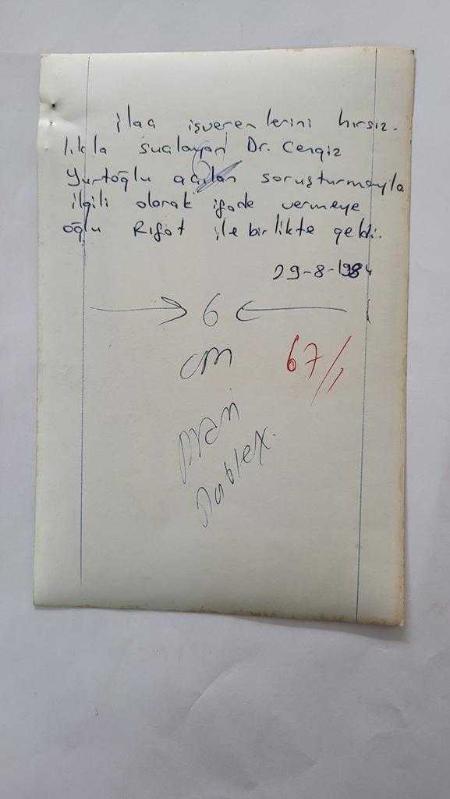 ilaç işverenlerini hırsız-
lıkla suçlayan Dr. Cengiz
Yurtoğlu açılan soruşturmayla
ilgili olarak ifade vermeye
oğlu Rıfat ile birlikte geldi.
29-8-1984
6
cm
67/1
Dublex.